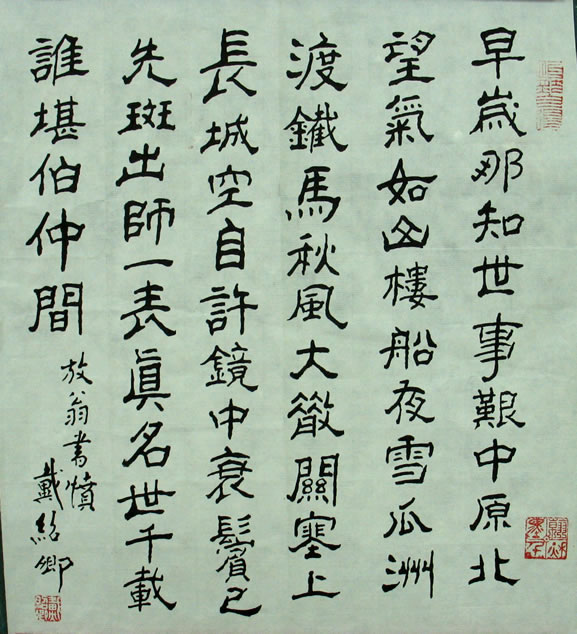 早歲那知世事艱中原北
望氣如山樓船夜雪瓜洲
渡鐵馬秋風大散關塞上
長城空自許鏡中衰鬢已
先斑出師一表眞名世千載
誰堪伯仲間
放翁書憤
戴紹卿